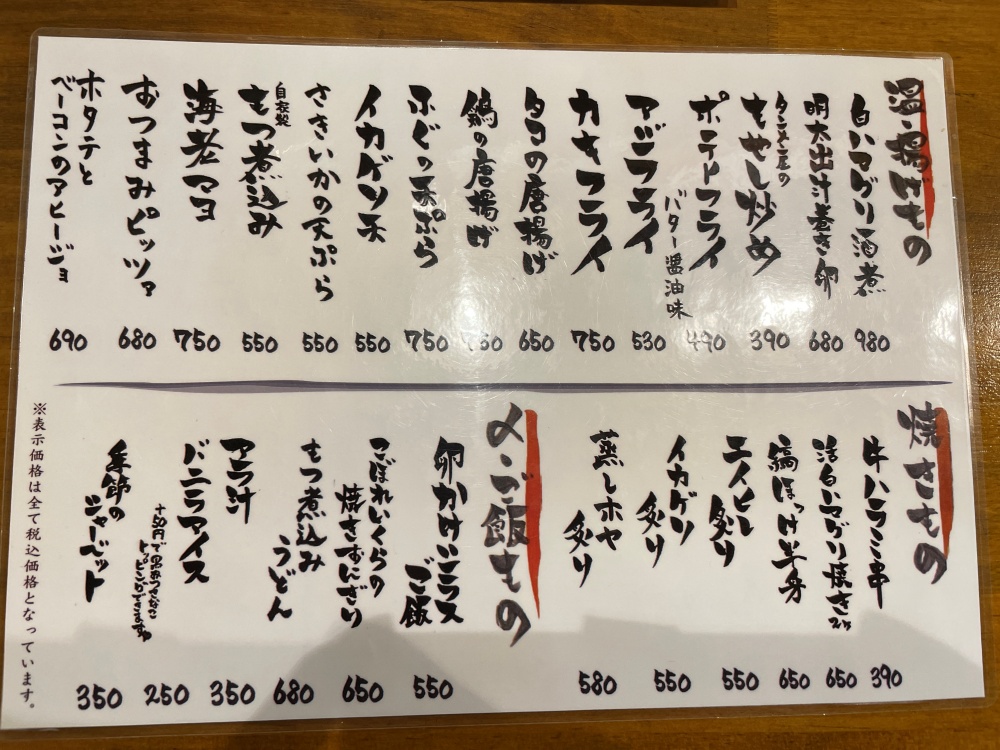 温・揚げもの
白ハマグリ酒煮
980
明太出汁巻き卵
680
もやし炒め
390
ポテトフライ
バター醤油味
490
アジフライ
530
カキフライ
750
タコの唐揚げ
650
鶏の唐揚げ
ふぐの天ぷら
750
イカゲソ天
550
さきいかの天ぷら
550
自家製
もつ煮込み
550
海老マヨ
750
おつまみピッツァ
680
ホタテと
ベーコンのアヒージョ
690
焼きもの
牛ハラミ串
390
活白ハマグリ焼き2ヶ
650
縞ほっけ半身
650
エイヒレ
炙り
550
イカゲソ
炙り
550
蒸しホヤ
炙り
580
〆・ご飯もの
卵かけシラス
ご飯
550
こぼれいくらの
焼きおんぎり
650
もつ煮込み
うどん
680
アラ汁
350
バニラアイス
250
季節の
シャーベット
350
※表示価格は全て税込価格となっています。